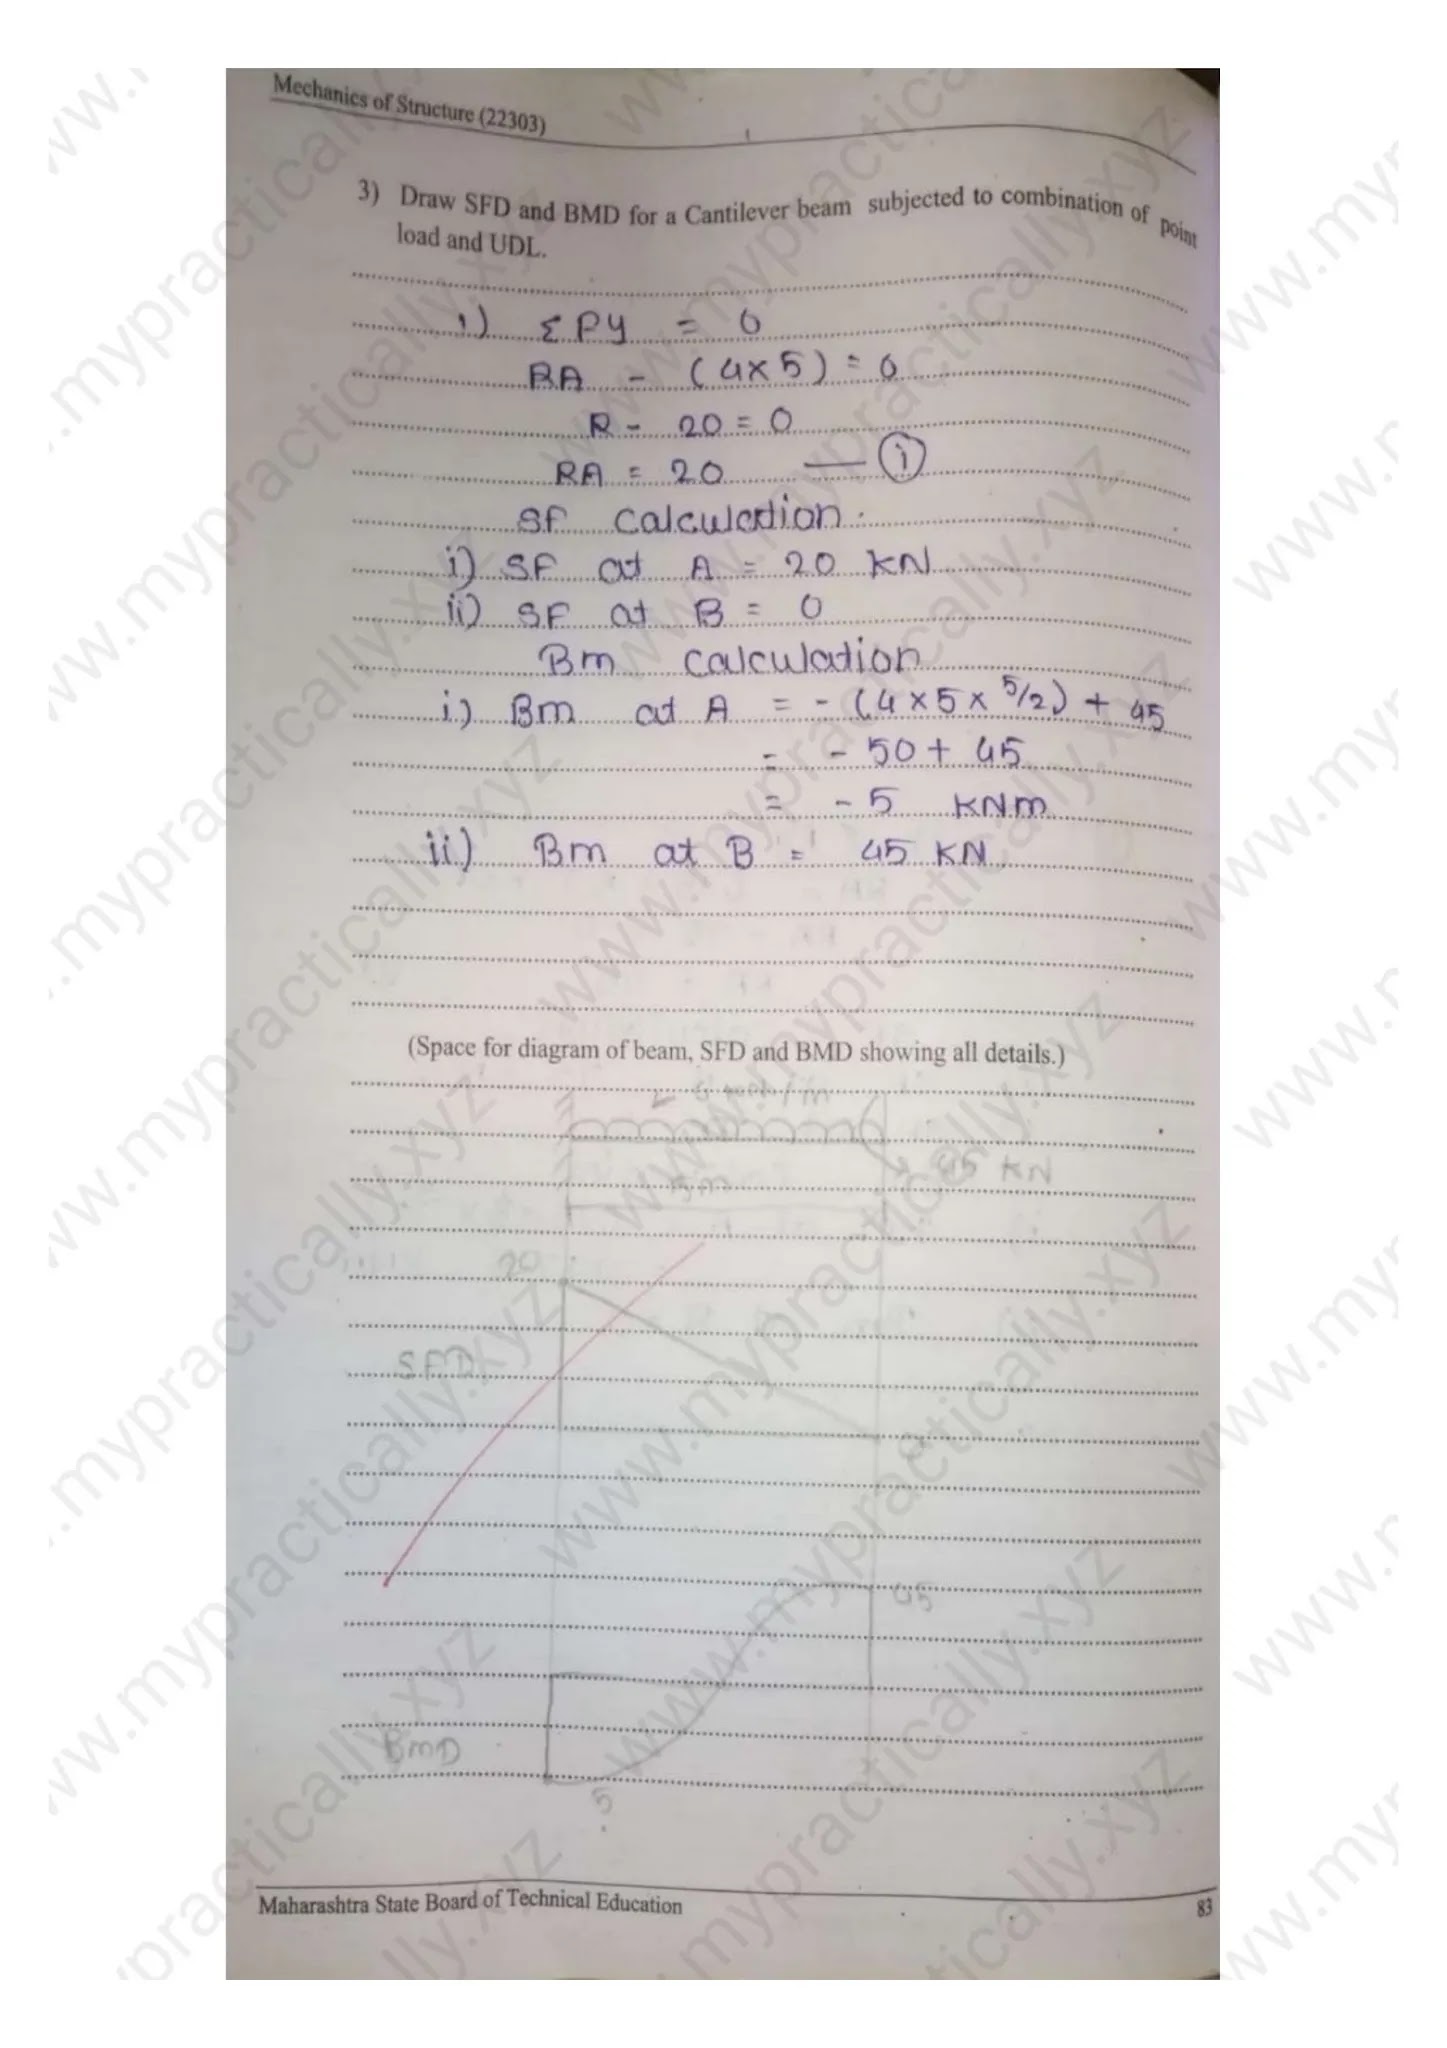 Mechanics of Structure (22303)
3) Draw SFD and BMD for a Cantilever beam subjected to combination of point
load and UDL.
1) Σ PY = 0
RA - (4×5) = 0
R - 20 = 0
RA = 20 — (i)
SF calculation.
i) SF at A = 20 KN
ii) SF at B = 0
Bm calculation
i) Bm at A = - (4×5× 5/2) + 45
= - 50 + 45
= - 5 KNm
ii) Bm at B = 45 KN
(Space for diagram of beam, SFD and BMD showing all details.)
45 KN
5m
20
SFD
0
45
BMD
5
Maharashtra State Board of Technical Education
83
www.mypractically.xyz